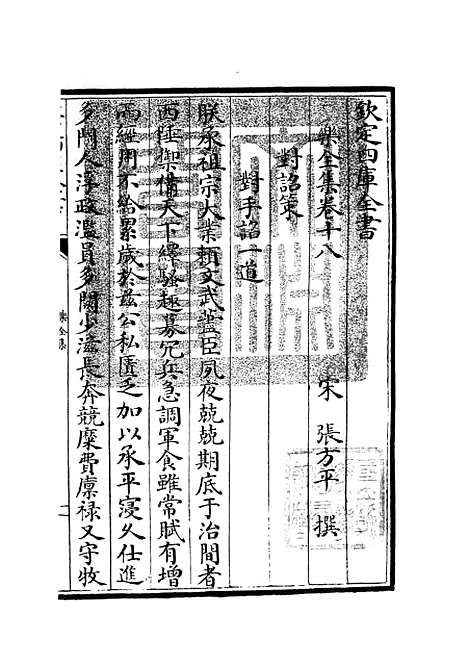 欽定四庫全書
樂全集卷十八
宋　張方平　撰
對詔策
對手詔一道
朕承祖宗大業賴文武藎臣夙夜兢兢期底于治間者
西陲禦備天下繹騷趣募冗兵急調軍食雖常賦有增
而經用不給累歲於兹公私匱乏加以承平寖久仕進
多門人浮政濫員多闕少滋長奔競糜費廪禄又守牧